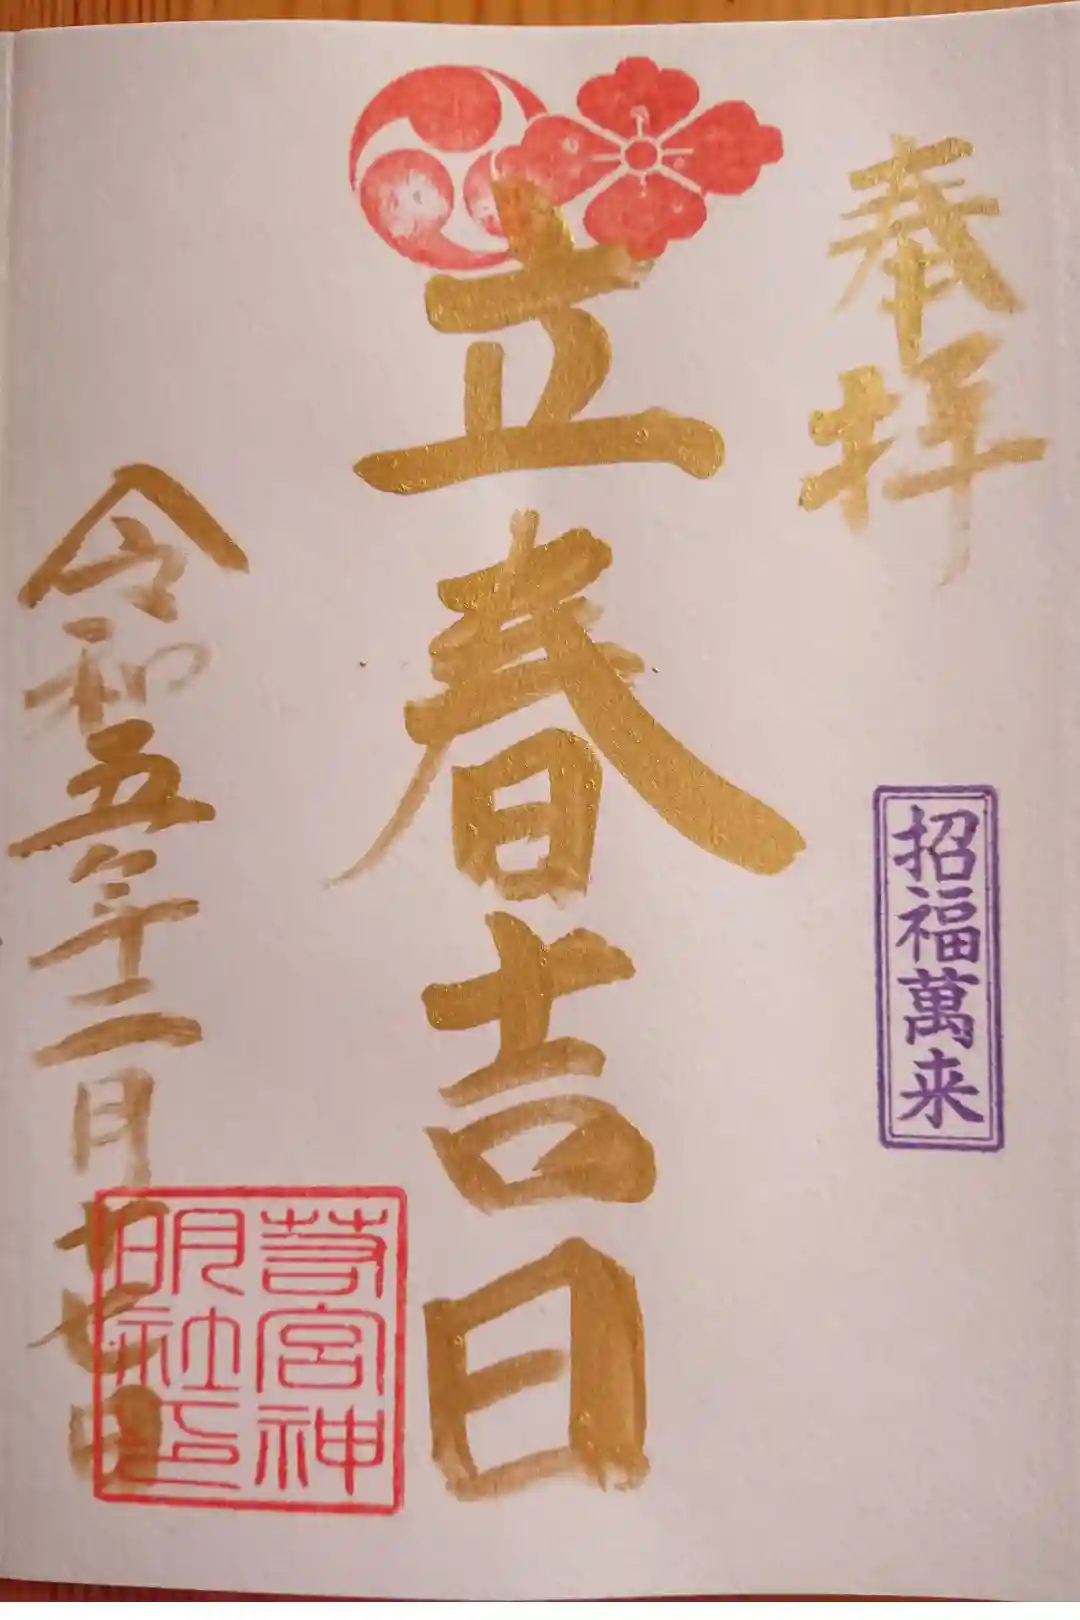 奉拝
招福萬来
立春吉日
令和五年十二月廿七日
若宮神
明社印